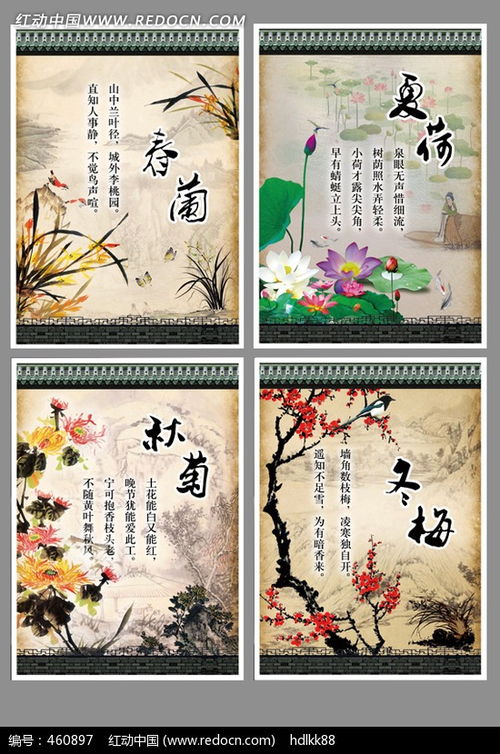 红动中国 WWW.REDOCN.COM
红动中国 WWW.REDOCN.COM
春蘭
山中兰叶径，城外李桃园。
直知人事静，不觉鸟声喧。
夏荷
泉眼无声惜细流，
树荫照水弄轻柔。
小荷才露尖尖角，
早有蜻蜓立上头。
秋菊
土花能白又能红，
晚节犹能爱此工。
宁可抱香枝头老，
不随黄叶舞秋风。
冬梅
墙角数枝梅，凌寒独自开。
遥知不足雪，为有暗香来。
编号：460897 红动中国 (www.redocn.com) hdlkk88